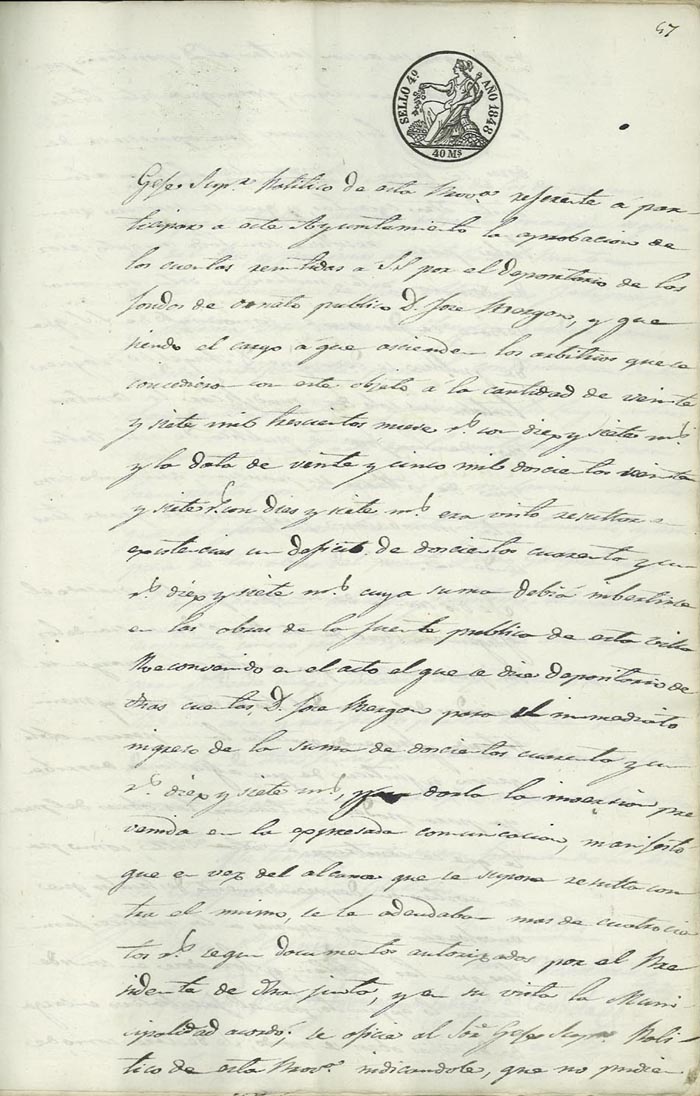 57
SELLO 4º AÑO 1848
40 Ms
Gefe Supr Politico de esta Provª referente á par
ticipar a este Ayuntamiento la aprobacion de
los cuentas remitidas a S.S por el depositario de los
fondos de ornato publico D. Jose Mergon, y que
siendo el cargo a que ascienden los arbitrios que se
concedieron con este objeto á la cantidad de veinte
y siete mil trescientos nueve rs con diez y siete ms
y la data de vente y cinco mil doscientos
y siete rs con dies y siete ms era visto resultar
existencias un deficit de doscientos cuarenta y un
rs diez y siete ms cuya suma debia imbertirse
en las obras de la fuente publica de esta villa
Reconvenido en el acto el que se dice depositario de
dhas cuentas, D. Jose Mergon para el immediato
ingreso de la suma de doscientos cuarenta y un
rs diez y siete ms, darla la insercion pre
venida en la expresada comunicacion, manifesto
que en vez del alcance que se supone resulta con
tra el mismo, se le adeudaban mas de cuatrocien
tos rs segun documentos autorizados por el Pre
sidente de dha junta, y en su vista la Muni
cipalidad acordó; se oficie al Sor Gefe Supr Poli-
tico de esta Provª indicandole, que no pudien